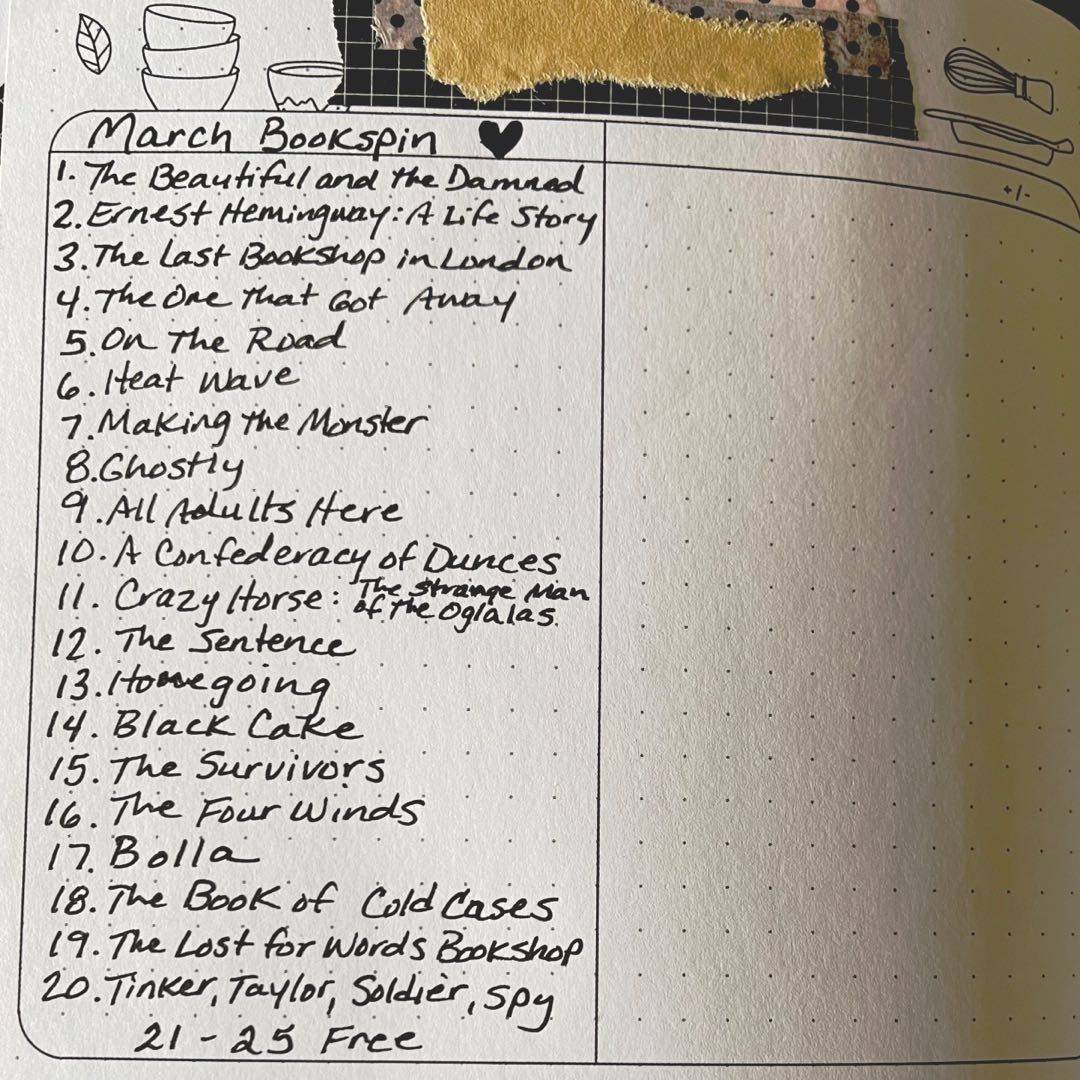 March Bookspin ♥
+/-
1. The Beautiful and the Damned
2. Ernest Hemingway: A Life Story
3. The Last Bookshop in London
4. The One That Got Away
5. On The Road
6. Heat Wave
7. Making the Monster
8. Ghostly
9. All Adults Here
10. A Confederacy of Dunces
11. Crazy Horse: The Strange Man
of the Oglalas.
12. The Sentence
13. Homegoing
14. Black Cake
15. The Survivors
16. The Four Winds
17. Bolla
18. The Book of Cold Cases
19. The Lost for Words Bookshop
20. Tinker, Taylor, Soldier, Spy
21 - 25 Free